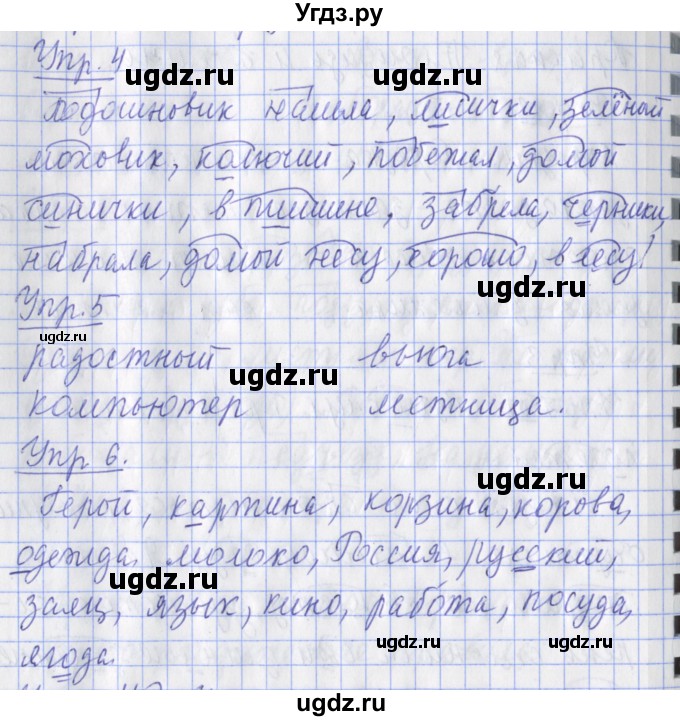 Угдз.ру
Упр. 4
ugdz.ru ugdz.ru
Подошновик нашла, лисички, зелёный
моховик, колючий, побежал, домой
синички, в тишине, забрела, черники,
набрала, домой несу, хорошо, в лесу!
ugdz.ru
Упр. 5
ugdz.ru
радостный вьюга
ugdz.ru
компьютер местница.
Упр 6.
ugdz.ru
Герой, картина, корзина, корова,
одежда, молоко, Россия, русский,
ugdz.ru
заяц, язык, кино, работа, посуда,
ugdz.ru ugdz.ru
ягода.
ugdz.ru